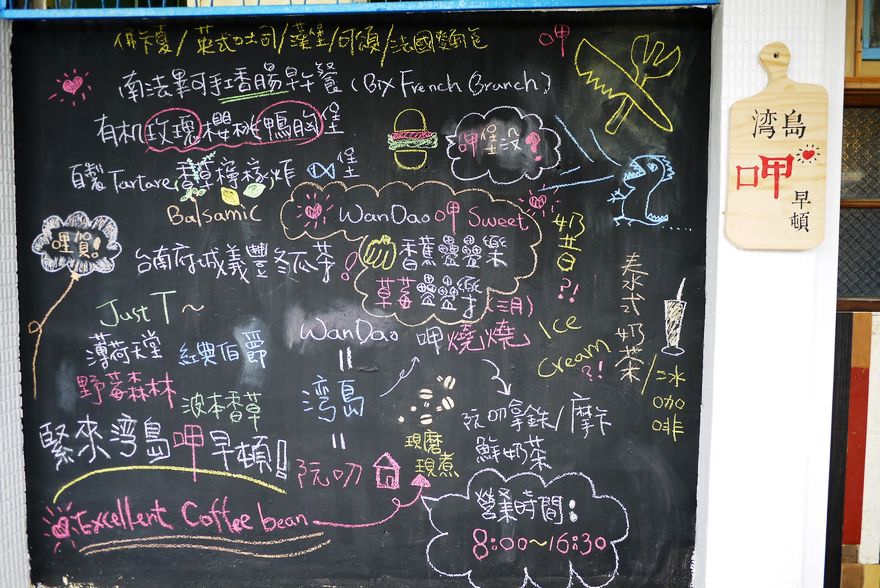 佛卡夏/英式吐司/漢堡/可頌/法國麵包
南法畢可手工香腸早午餐(Bix French Brunch)
呷
有机玫瑰櫻桃鴨胸堡
呷堡沒?
自製Tartare香草檸檬炸 堡
Balsamic
WanDao 呷 Sweet
香蕉疊疊樂
草莓疊疊樂(三月)
奶昔?!
Ice Cream?!
泰式奶茶/冰咖啡
哩賀!
台南府城義豐冬瓜茶!
Just T~
薄荷天堂
紅與伯爵
野莓森林
波本香草
WanDao 呷燒燒
灣島
阮叨
現磨現煮
阮叨拿鉄/摩卡
鮮奶茶
緊來灣島呷早頓!
Excellent Coffee bean
營業時間:
8:00~16:30
湾島
呷
早頓